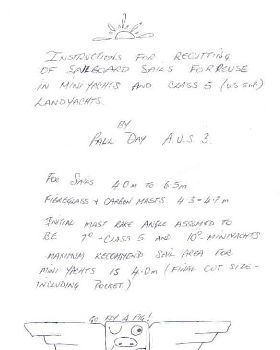 INSTRUCTIONS FOR RECUTTING
OF SAILBOARD SAILS FOR REUSE
IN MINI YACHTS AND CLASS 5 (
LANDYACHTS.
BY
PAUL DAY A.U.S 3.
FOR SAILS 4.0m TO 6.5m
FIBREGLASS & CARBON MASTS 4.3-4.7m
INITIAL MAST RAKE ANGLE ASSUMED TO
BE 7° - CLASS 5 AND 10° MINIYACHTS
MAXIMUM RECOMMEND SAIL AREA FOR
MINI YACHTS IS 4.0m (FINAL CUT SIZE -
INCLUDING POCKET.)
GO FLY A PIG!